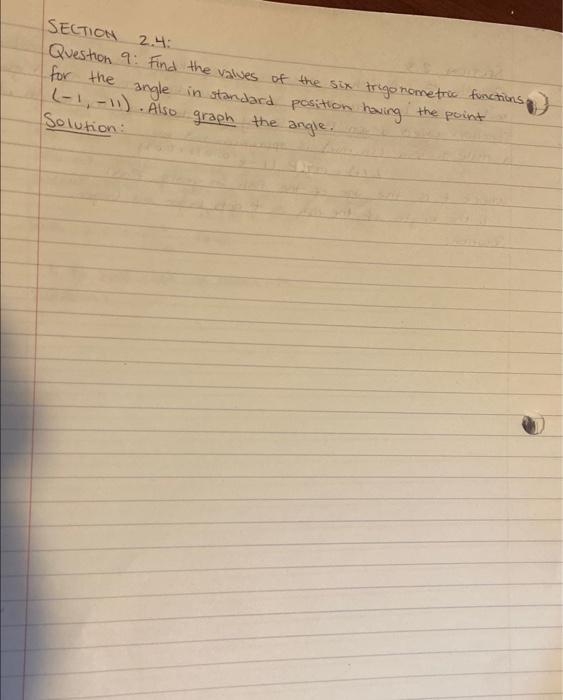 SECTION 2.4:
Question 9: Find the values of the six trigonometric functions
for the angle in standard position having the point
(-1, -11). Also graph the angle.
Solution: